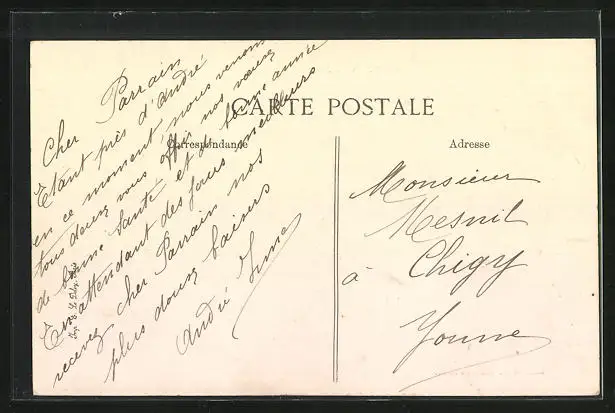 CARTE POSTALE
Correspondance
Adresse
Cher Parrain
Etant près d'André
en ce moment, nous venons
tous deux vous offrir nos vœux
de bonne santé et de bonne année
En attendant des jours meilleurs
recevez cher Parrain nos
plus doux baisers
André
Monsieur
Mesnil
à Chigy
Yonne